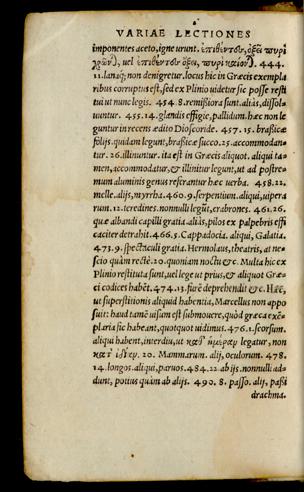 VARIAE LECTIONES
imponentes aceto, igne urunt. ἐπιθέντες, ὄξει πυρὶ
χρῶντ), uel ἐπιθέντες ὄξει, πυρὶ καίοντ). 444.
11. lanaq; non denigretur. locus hic in Græcis exempla
ribus corruptus est, sed ex Plinio uidetur sic posse resti
tui ut nunc legis. 454. 8. remissiora sunt. aliàs, dissol-
uuntur. 455. 14. glandis effigie, pallidum. hæc non le
guntur in recens ædito Dioscoride. 457. 15. braßicæ
folijs. quidam legunt, braßicæ succo. 25. accommodan-
tur. 26. illinuntur. ita est in Græcis aliquot. aliqui ta-
men, accommodatur, & illinitur legunt, ut ad postre-
mum aluminis genus referantur hæc uerba. 458. 22.
melle. alijs, myrrha. 460. 9. serpentium. aliqui, uipera
rum. 12. teredines. nonnulli legūt, crabrones. 461. 26.
quæ albandi capilli gratia. aliàs, pilos ex palpebris effi
caciter detrahit. 466. 5. Cappadocia. aliqui, Galatia.
473. 9. spectaculi gratia. Hermolaus, theatris, at ne-
scio quàm rectè. 20. quoniam noctu &c. Multa hic ex
Plinio restituta sunt, uel lege ut prius, & aliquot Græ-
ci codices habēt. 474. 13. furē deprehendit &c. Hæc,
ut superstitionis aliquid habentia, Marcellus non appo
suit: haud tamē uisum est submouere, quòd græca exē-
plaria sic habeant, quotquot uidimus. 476. 1. seorsum.
aliqui habent, interdiu, ut καθ' ἡμέραν legatur, non
κατ' ἰδίαν. 20. Mammarum. alij, oculorum. 478.
14. longos. aliqui, paruos. 484. 22 ab ijs. nonnulli ad-
dunt, potius quàm ab alijs. 490. 8. passo. alij, paßi
drachma.